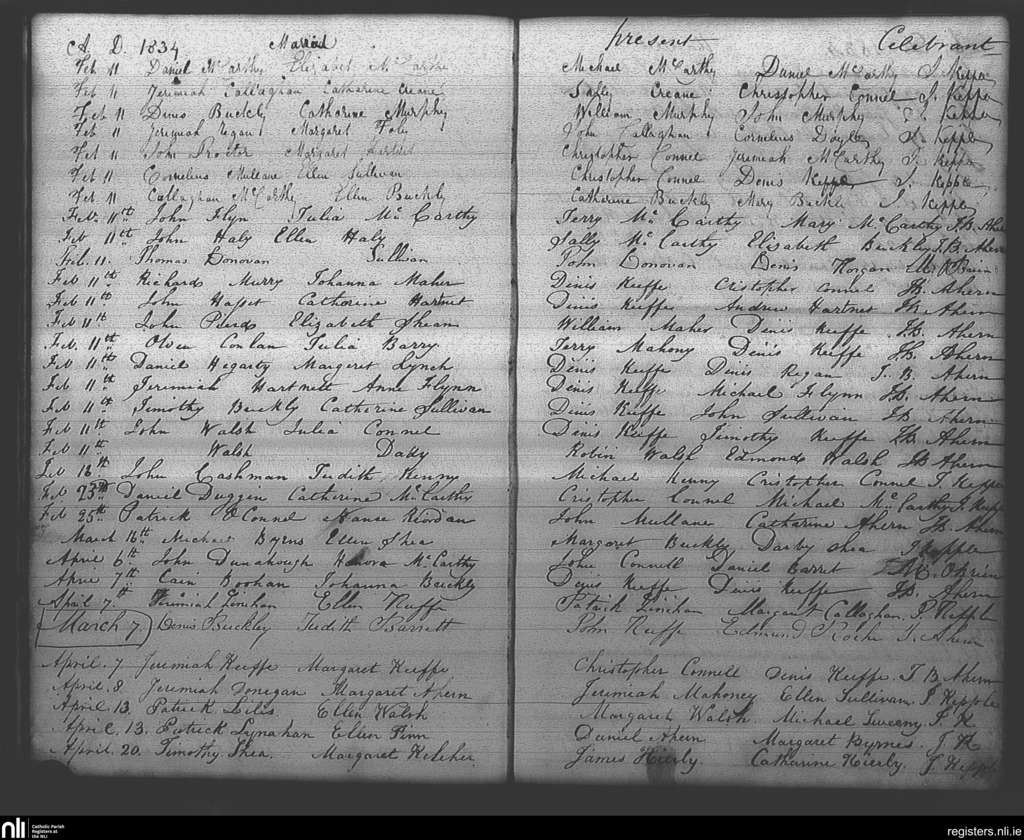 A. D. 1834 Married present Celebrant
Feb 11 Daniel McCarthy Elizabet McCarthy Michael McCarthy Daniel McCarthy J. Kepple
Feb 11 Jeremiah Callaghan Catharine Creane Creane Christopher Connel J. Kepple
Feb 11 Denis Buckley Catharine Murphy William Murphy John Murphy J. Kepple
Feb 11 Jeremiah Regan Margaret John Callaghan Cornelius Doyle J. Kepple
Feb 11 John Procter Margaret Christopher Connel Jeremiah McCarthy J. Kepple
Feb 11 Cornelius Mullane Ellen Sullivan Christopher Connel Denis Kepple J. Kepple
Feb 11 Callaghan McCarthy Ellen Buckly Catharine Buckly Mary Buckly J. Kepple
Feb. 11th John Flyn Julia Mc Carthy Terry Mc Carthy Mary McCarthy J.B. Ahern
Feb 11th John Haly Ellen Haly Sally McCarthy Elisabeth Buckley J.B. Ahern
Feb. 11. Thomas Donovan Sullivan John Donovan Denis Horgan
Feb 11th Richard Murry Johanna Maher Denis Keeffe Cristopher Connel J.B. Ahern
Feb 11th John Hasset Catherine Hartnet Denis Keeffe Andrew Hartnet J.B. Ahern
Feb 11th John Elizabeth Shean William Maher Denis Keeffe J.B. Ahern
Feb. 11th Owen Conlan Julia Barry Terry Mahony Denis Keeffe J.B. Ahern
Feb 11th Daniel Hegarty Margeret Lynch Denis Keeffe Denis Regan J.B. Ahern
Feb 11th Jeremiah Hartnett Anne Flynn Denis Keeffe Michael Flynn J.B. Ahern
Feb 11th Timothy Buckly Catherine Sullivan Denis Keeffe John Sullivan J.B. Ahern
Feb 11th John Walsh Julia Connel Denis Keeffe Timothy Keeffe J.B. Ahern
Feb 11th Walsh Daly Robin Walsh Edmond Walsh J.B. Ahern
Feb 18th John Cashman Judith Kenny Michael Kenny Cristopher Connel J. Kepple
Feb 23rd Daniel Duggen Catherine McCarthy Cristopher Connel Michael McCarthy J. Kepple
Feb 25th Patrick O'Connel Riordan John Mullane Catharine Ahern J.B. Ahern
March 16th Michael Byrns Ellen Shea Margaret Buckly Darby Shea J Kepple
April 6th John Dunahough Honora McCarthy John Connell Daniel Barret O'Brien
April 7th Cain Boohan Johanna Buckly Denis Keeffe Denis Keeffe J.B. Ahern
April 7th Jeremiah Linehan Ellen Keeffe Patrick Linehan Margaret Callaghan J. Kepple
March 7. Denis Buckley Judith Barrett John Keeffe Edmund Roche J. Ahern
April. 7 Jeremiah Keeffe Margaret Keeffe Christopher Connell Denis Keeffe J B Ahern
April. 8. Jeremiah Donegan Margaret Ahern Jeremiah Mahoney Ellen Sullivan J. Kepple
April. 13 Patrick Lilis Ellen Walsh Margaret Walsh. Michael Sweeny J. K
April. 13. Patrick Lynahan Ellen Daniel Ahern Margaret Byrnes. J. K
April. 20. Timothy Shea. Margaret Keleher. James Hierly. Catharine Hierly. J. Kepple
nli
Catholic Parish
Registers at
the NLI
registers.nli.ie